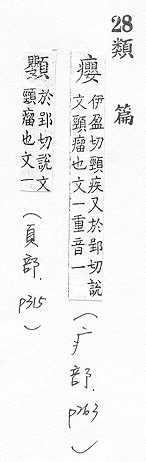 28類篇
癭 伊盈切頸疾又於郢切說文頸瘤也文一重音一 (疒部. p263)
𩕍 於郢切說文頸瘤也文一 (頁部. p315)